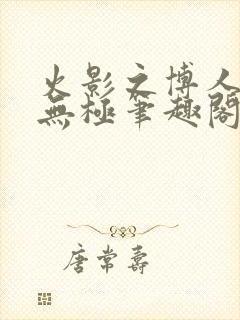 火影之博人
無極筆趣閣
唐常壽